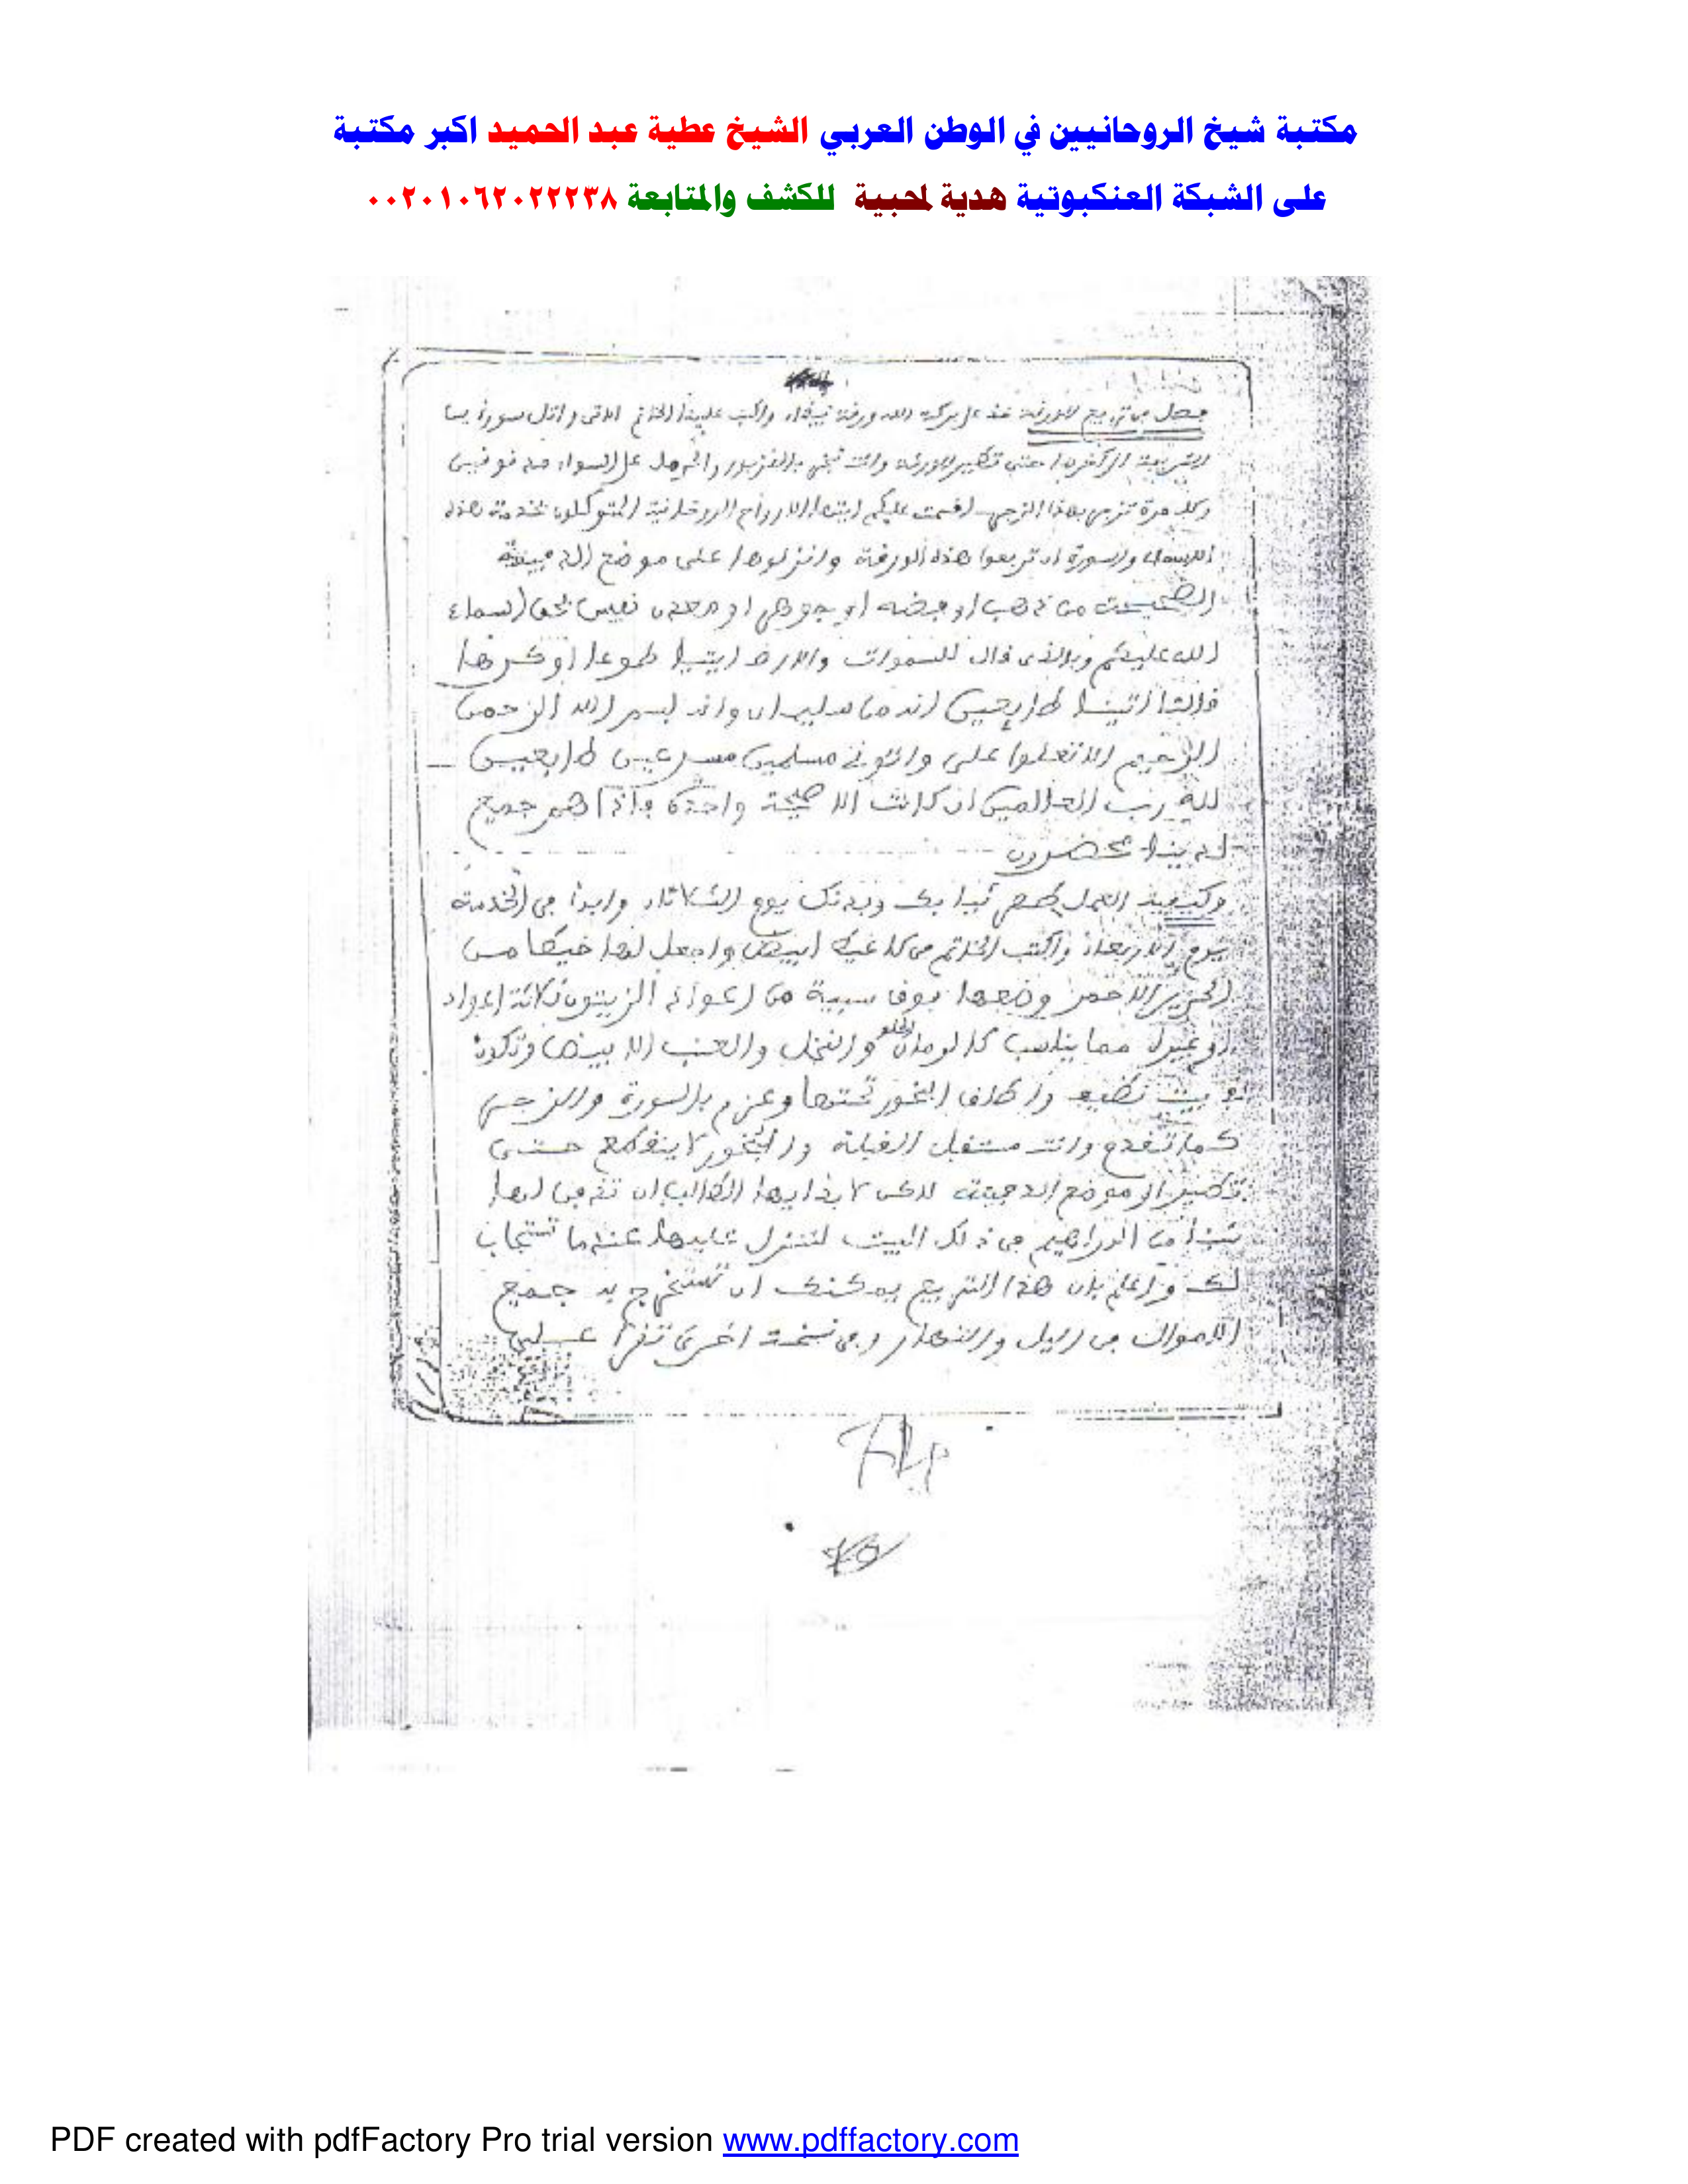 مكتبة شيخ الروحانيين في الوطن العربي الشيخ عطية عبد الحميد اكبر مكتبة
على الشبكة العنكبوتية هدية لمحبية للكشف والمتابعة ٠٠٢٠١٠٦٢٠٢٢٢٣٨
الورقة واكتب عليها الخاتم الاتي واتل سورة يس
وانت تبخر
وكل مرة تزجر بهذا الزجر اقسمت عليكم ايتها الارواح الروحانية المتوكلون بخدمة هذه
الاسماء والسورة ان تربعوا هذه الورقة وانزلوها على موضع الدفينة
من ذهب او فضه او جوهر او معدن نفيس بحق اسماء
الله عليكم وبالذي قال للسموات والارض ايتيا طوعا او كرها
قالتا اتينا طايعين انه من سليمان وانه بسم الله الرحمن
الرحيم الا تعلوا على واتوني مسلمين مسرعين طايعين
لله رب العالمين ان كانت الا صيحة واحدة فاذا هم جميع
لدينا محضرون
وكيفية العمل ثيابك وبدنك يوم الثلاثاء وابدا في الخدمة
يوم الاربعاء واكتب الخاتم في كاغيد ابيض واجعل لها خيطا من
الحرير الاحمر وضعها فوق سيبة من اعواد الزيتون ثلاثة اعواد
او غيره مما يناسب كالرمان الحلو والنخل والعنب الابيض وتكون
في بيت نظيف واطلق البخور تحتها وعزم بالسورة والزجر
كما تقدم وانت مستقبل القبلة والبخور لا ينقطع حتى
تطير الى موضع الدفينة لاكن لا بد ايها الطالب ان تدفن لها
شيا من الدراهيم في ذلك البيت لتنزل عليها عندما تستجاب
لك واعلم بان هذا التربيع يمكنك ان تستخرج به جميع
الاموال في الليل والنهار وفي نسخة اخرى تقرا على
PDF created with pdfFactory Pro trial version www.pdffactory.com